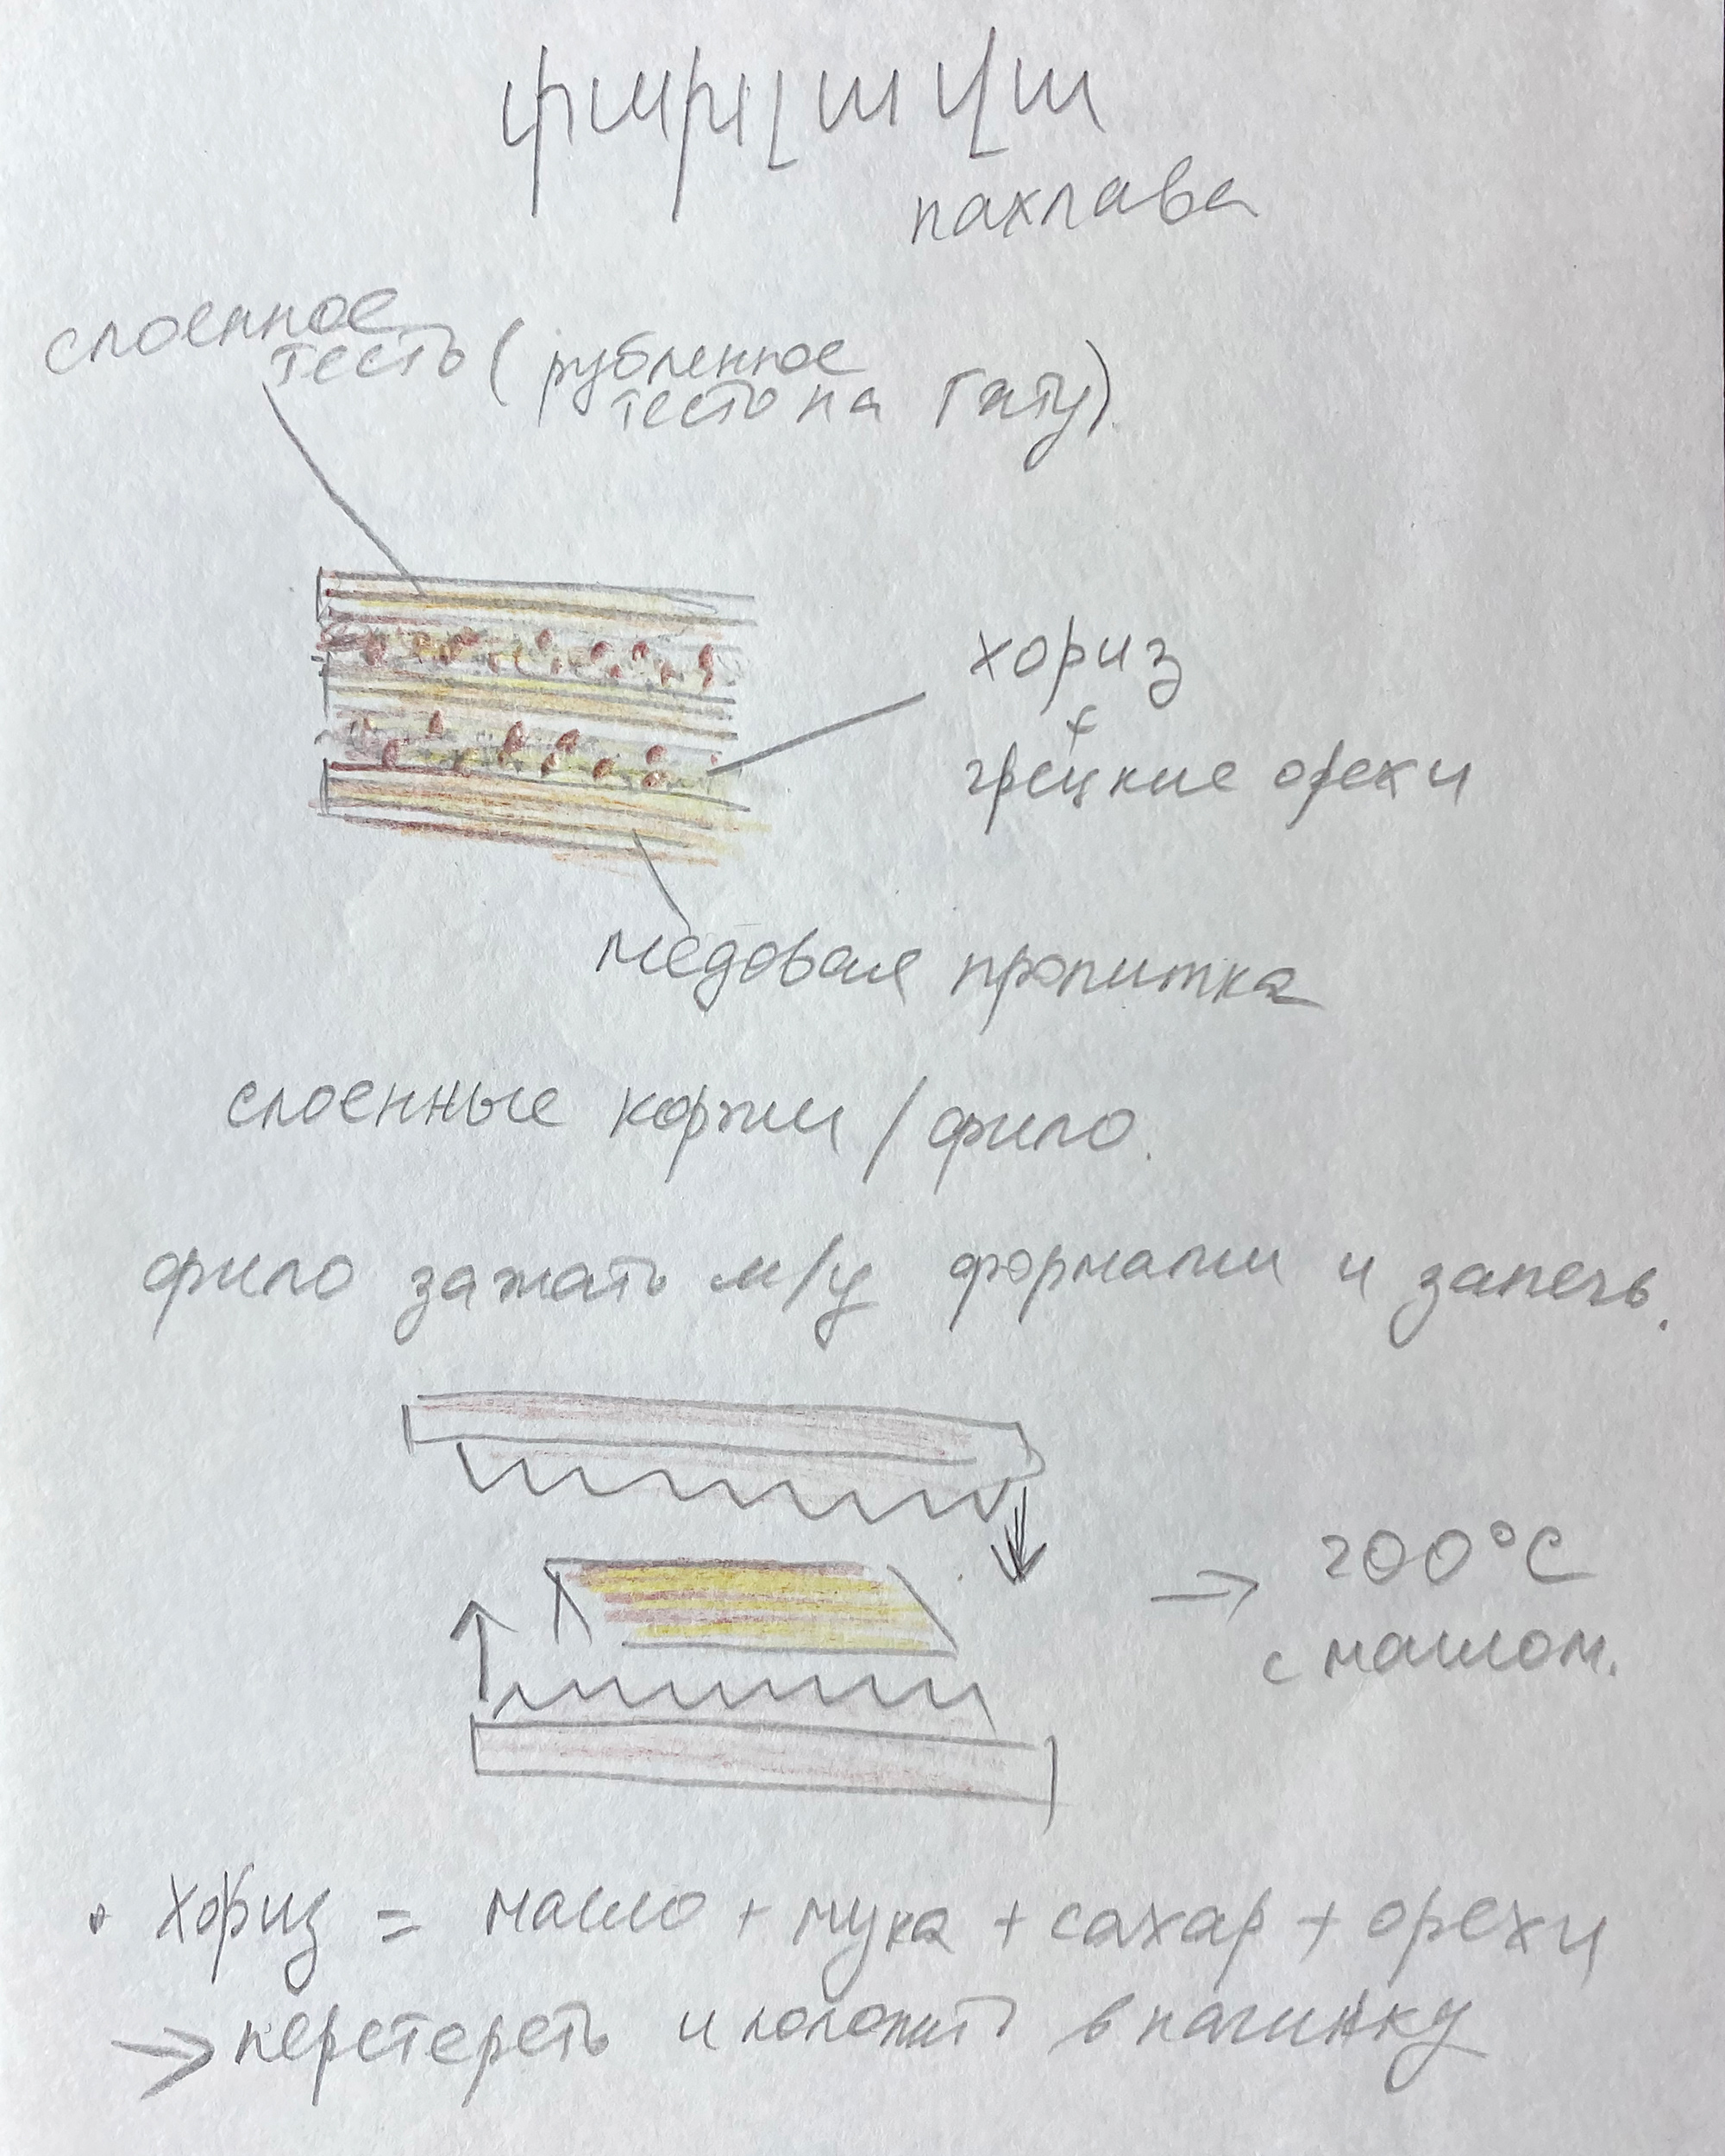 փախլավա
пахлава
слоенное
тесто (рубленное
тесто на гату).
хориз
+
грецкие орехи
медовая пропитка
слоенные коржи / фило.
фило зажать м/у формами и запечь.
→ 200°C
с маслом.
• Хориз = масло + мука + сахар + орехи
→ перетереть и положить в начинку